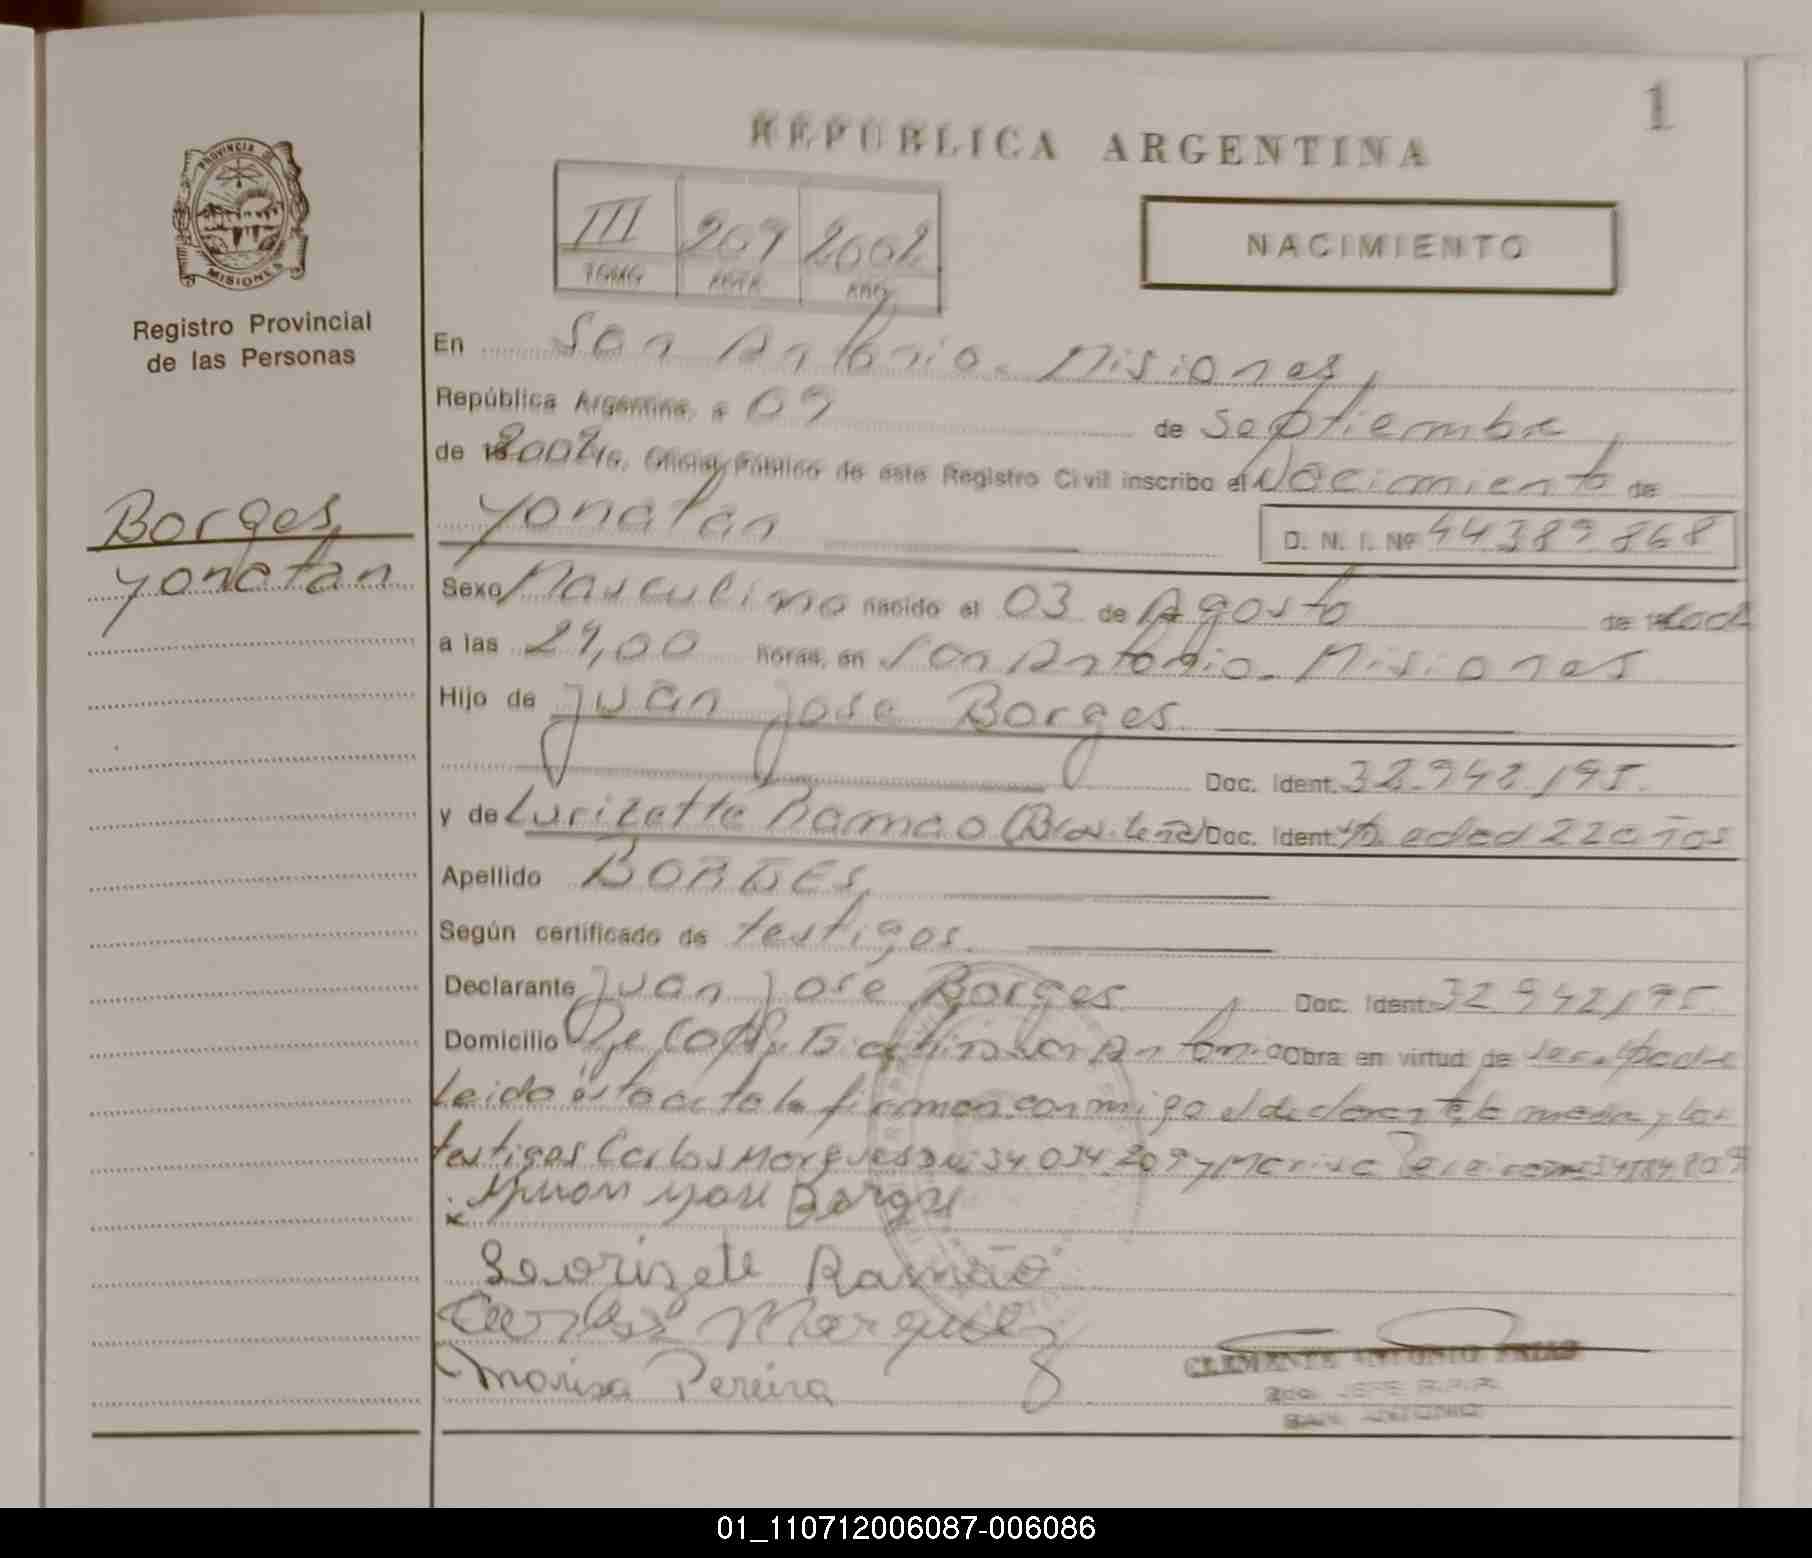 1
REPUBLICA ARGENTINA
PROVINCIA
MISIONES
III 209 2002
TOMO ACTA AÑO
NACIMIENTO
Registro Provincial
de las Personas
En San Antonio. Misiones,
República Argentina, a 09 de Septiembre
de 2002 Oficial Público de este Registro Civil inscribo el Nacimiento de
Yonatan D. N. I. Nº 44389868
Borges,
Yonatan
Sexo Masculino nacido el 03 de Agosto de
a las 21,00 horas, en San Antonio. Misiones
Hijo de Juan Jose Borges
Doc. Ident. 32.942.195.
y de Ramao (Brasileña) Doc. Ident. edad 22 años
Apellido BORGES,
Según certificado de testigos.
Declarante Juan Jose Borges Doc. Ident. 32.942.195
Domicilio San Antonio Obra en virtud de ser el padre
Leido esta acta la firman conmigo el declarante, la madre y los
testigos Carlos Marques 34.034.209 y Marisa Pereira
x Juan Jose Borges
Ramão
Carlos Marques
Marisa Pereira
CLEMENTE ANTONIO FRIAS
JEFE R.P.P.
SAN ANTONIO
01_110712006087-006086